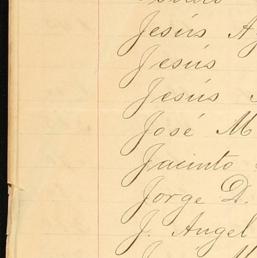 Jesús A
Jesús
Jesús
José M
Jacinto
Jorge D.
J. Angel